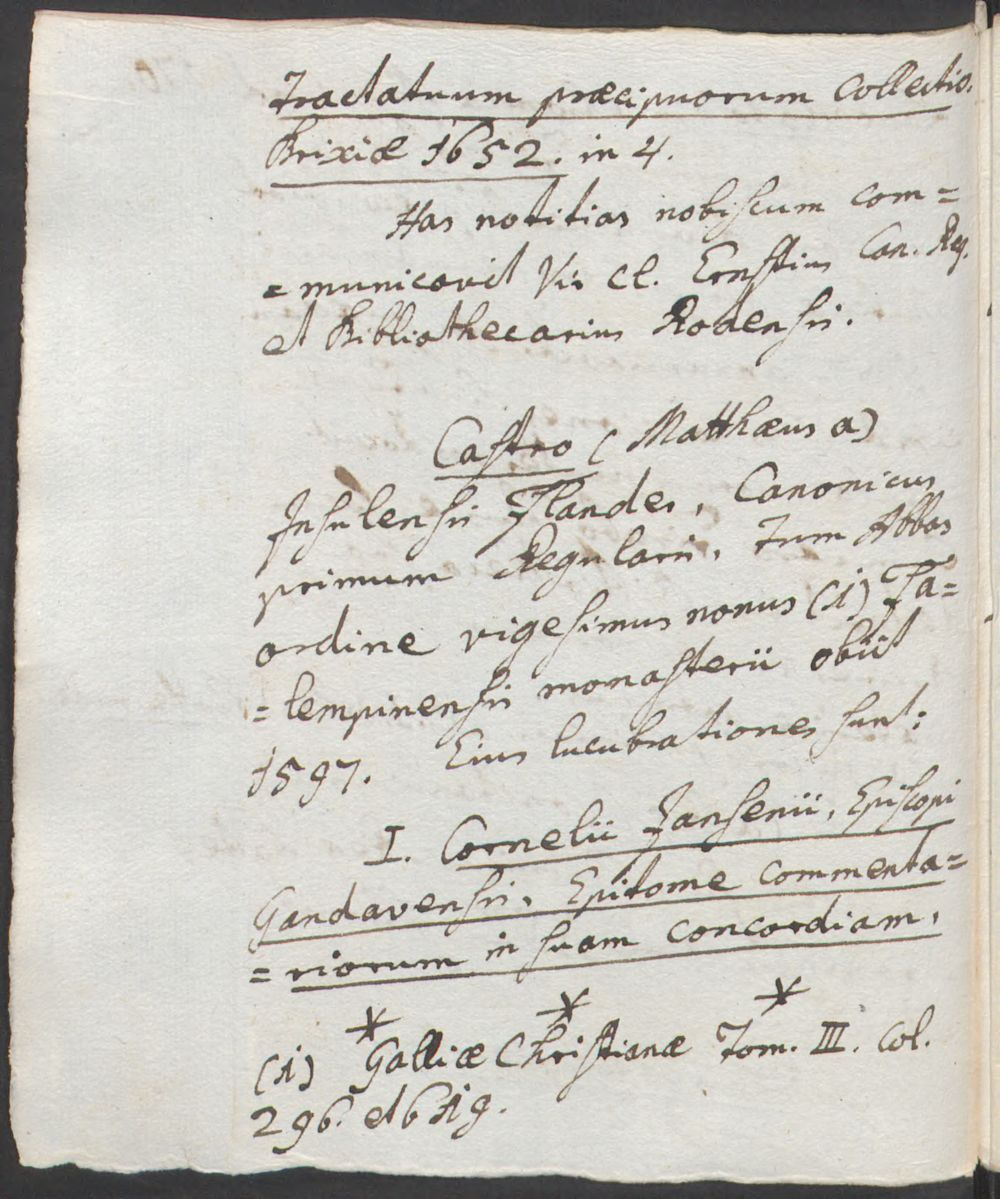 Tractatuum præcipuorum Collectio.
Brixiæ 1652. in 4.
Has notitias nobiscum com=
=municavit Vir Cl. Ernstius Can. Reg.
et Bibliothecarius Rodensis.
Castro (Matthæus a)
Insulensis Flander, Canonicus
primum Regularis, tum Abbas
ordine vigesimus nonus (1) Fa=
=lempinensis monasterii obiit
1597. Eius lucubrationes sunt:
I. Cornelii Jansenii, Episcopi
Gandavensis, Epitome commenta=
=riorum in suam concordiam,
* * *
(1) Galliæ Christianæ Tom. III. Col.
296. et 619.